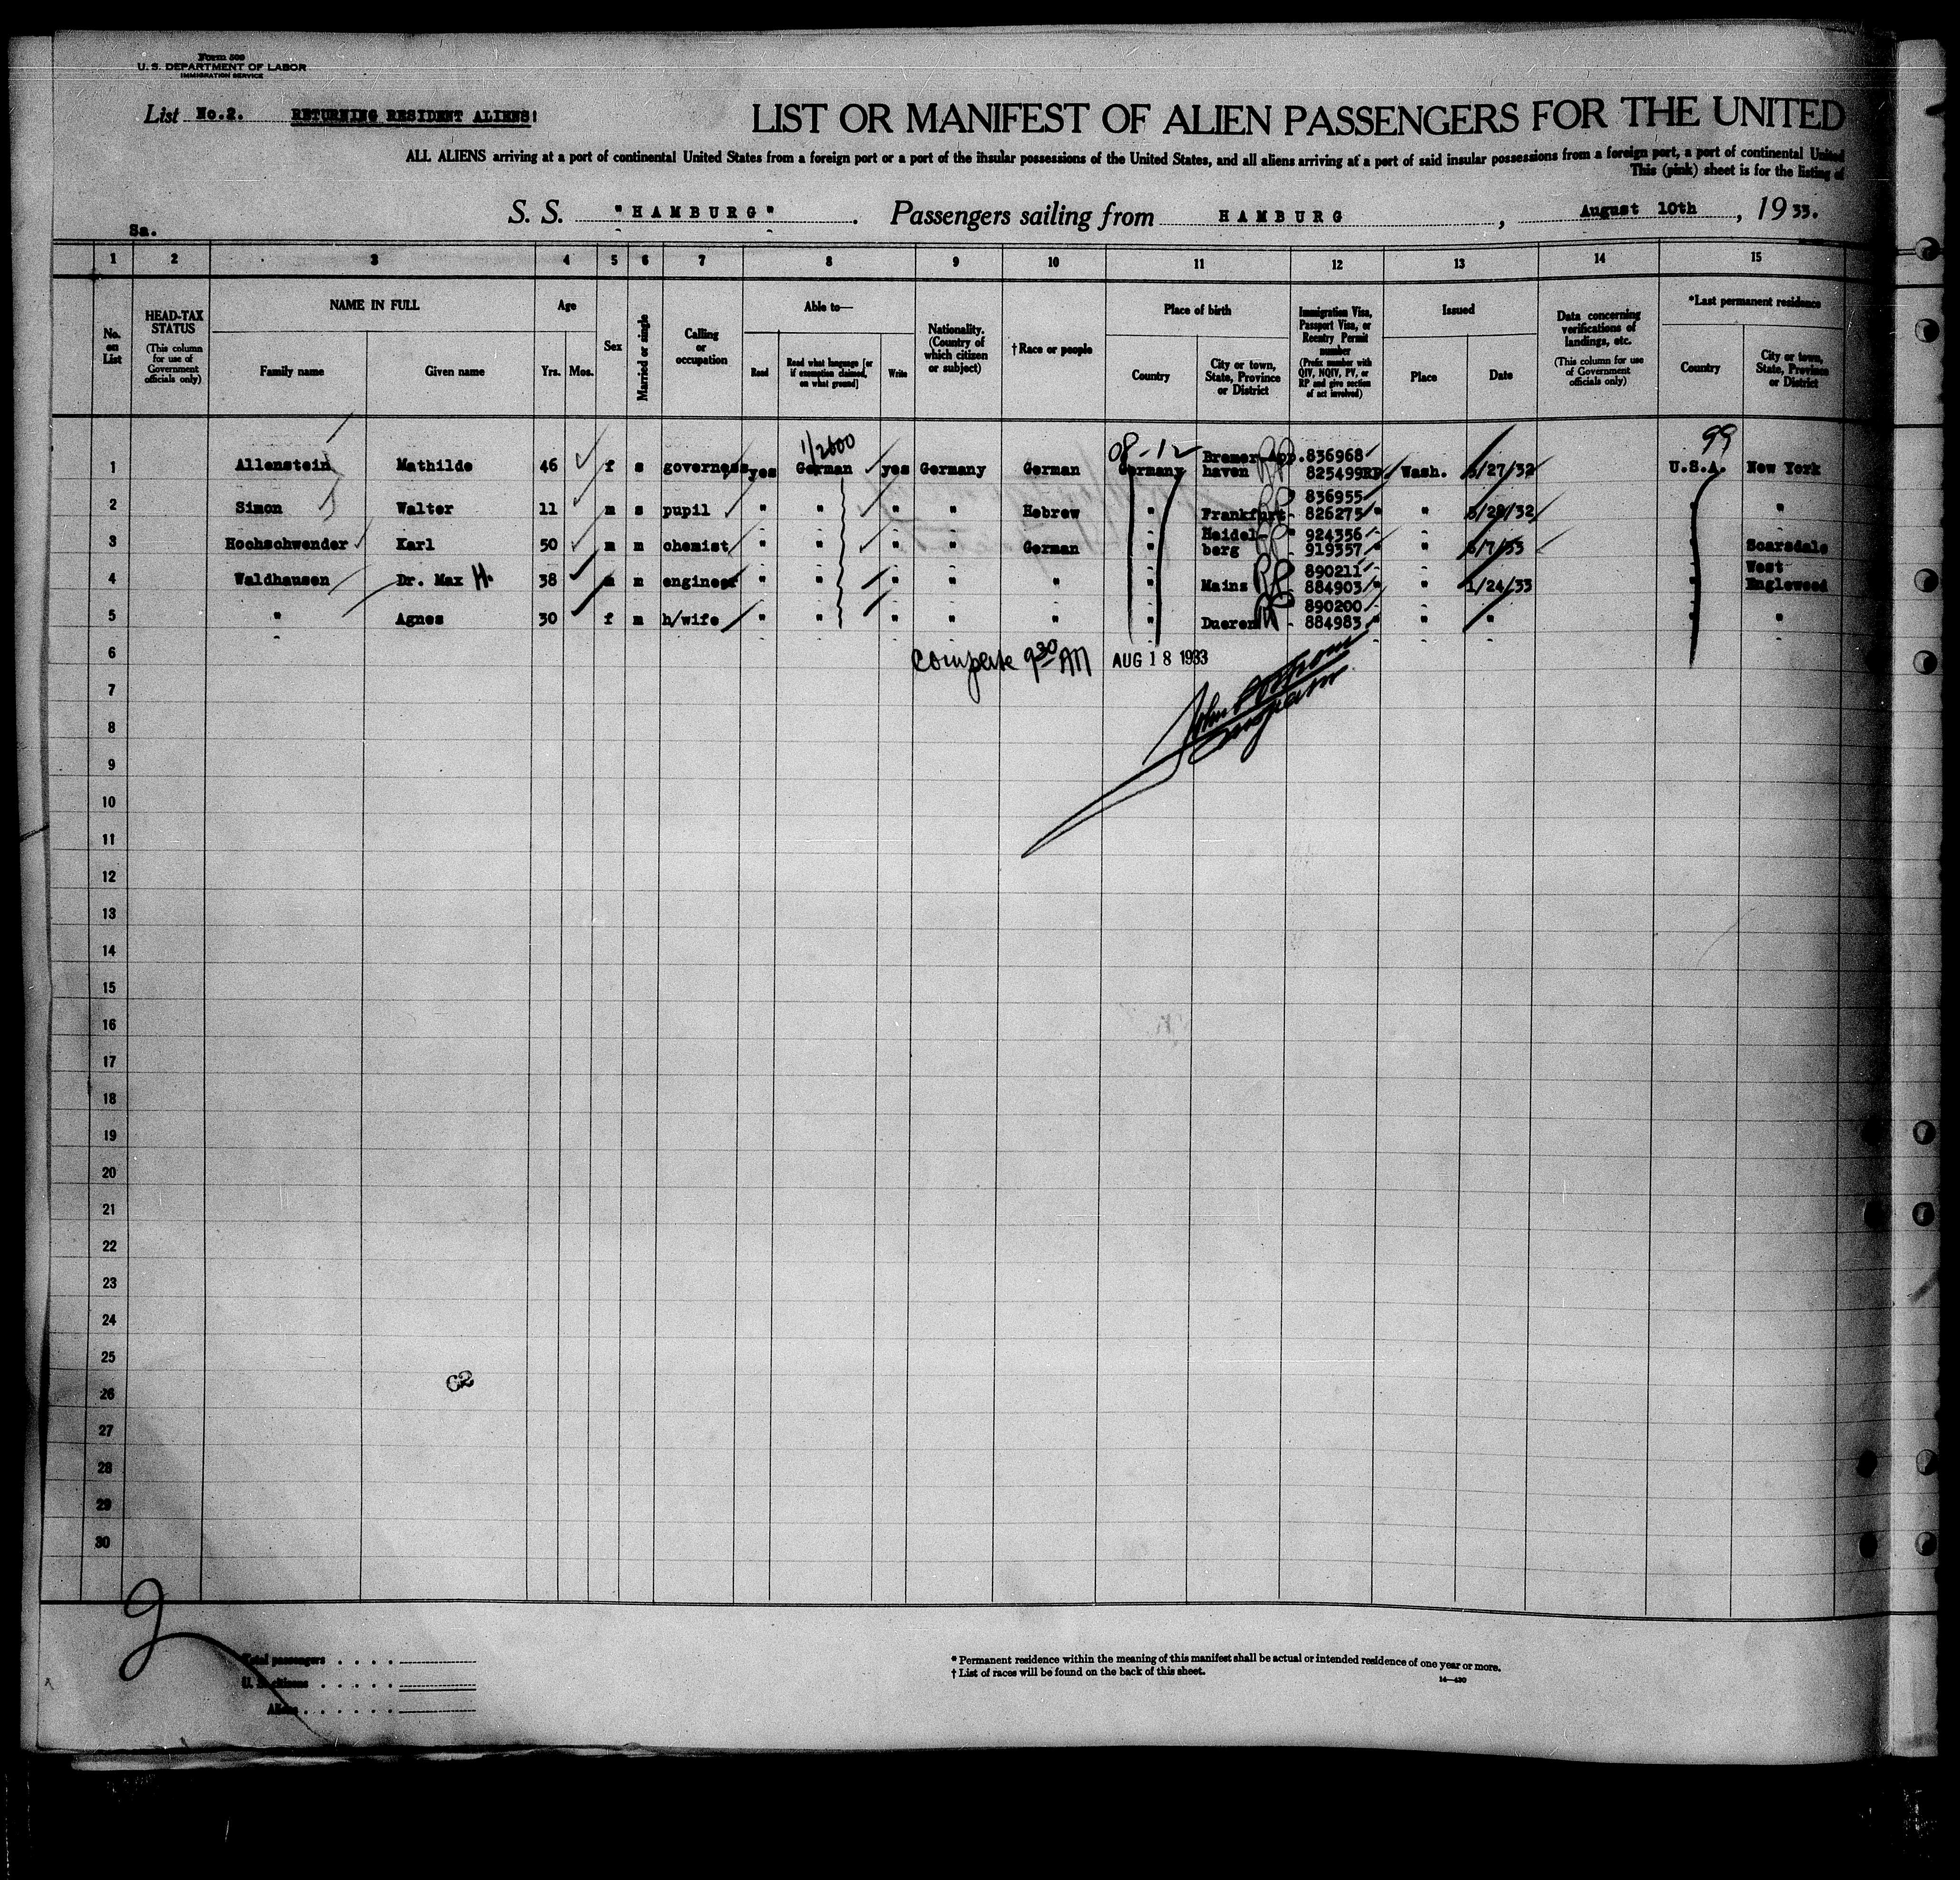 Form 500
U. S. DEPARTMENT OF LABOR
IMMIGRATION SERVICE
List No.2. RETURNING RESIDENT ALIENS!
LIST OR MANIFEST OF ALIEN PASSENGERS FOR THE UNITED
ALL ALIENS arriving at a port of continental United States from a foreign port or a port of the insular possessions of the United States, and all aliens arriving at a port of said insular possessions from a foreign port, a port of continental United
This (pink) sheet is for the listing of
S. S. "HAMBURG". Passengers sailing from HAMBURG, August 10th, 1933.
Sa.
1 2 3 4 5 6 7 8 9 10 11 12 13 14 15
No. on List
HEAD-TAX STATUS
(This column for use of Government officials only)
NAME IN FULL
Family name
Given name
Age
Yrs.
Mos.
Sex
Married or single
Calling or occupation
Able to—
Read
Read what language [or if exemption claimed, on what ground]
Write
Nationality. (Country of which citizen or subject)
† Race or people
Place of birth
Country
City or town, State, Province or District
Immigration Visa, Passport Visa, or Reentry Permit number
(Prefix number with QIV, NQIV, PV, or RP and give section of act involved)
Issued
Place
Date
Data concerning verifications of landings, etc.
(This column for use of Government officials only)
*Last permanent residence
Country
City or town, State, Province or District
1/2600
08-12
99
1 Allenstein Mathilde 46 f s governess yes German yes Germany German Germany Bremer-haven App.836968 825499RP Wash. /27/32 U.S.A. New York
2 Simon Walter 11 m s pupil " " " " Hebrew " Frankfurt " 836955 826275 " " /28/32 " "
3 Hochschwender Karl 50 m m chemist " " " " German " Heidel-berg " 924356 919357 " " 6/7/33 " Scarsdale
4 Waldhausen Dr. Max H. 38 m m engineer " " " " " " Mainz 890211 884903 " " 1/24/33 " West Englewood
5 " Agnes 30 f m h/wife " " " " " " Dueren 890200 884983 " " " " "
6 AUG 18 1933
9 30 AM
7
8
9
10
11
12
13
14
15
16
17
18
19
20
21
22
23
24
25
26
62
27
28
29
30
Total passengers
U. S. citizens
Aliens
* Permanent residence within the meaning of this manifest shall be actual or intended residence of one year or more.
† List of races will be found on the back of this sheet.
14—430